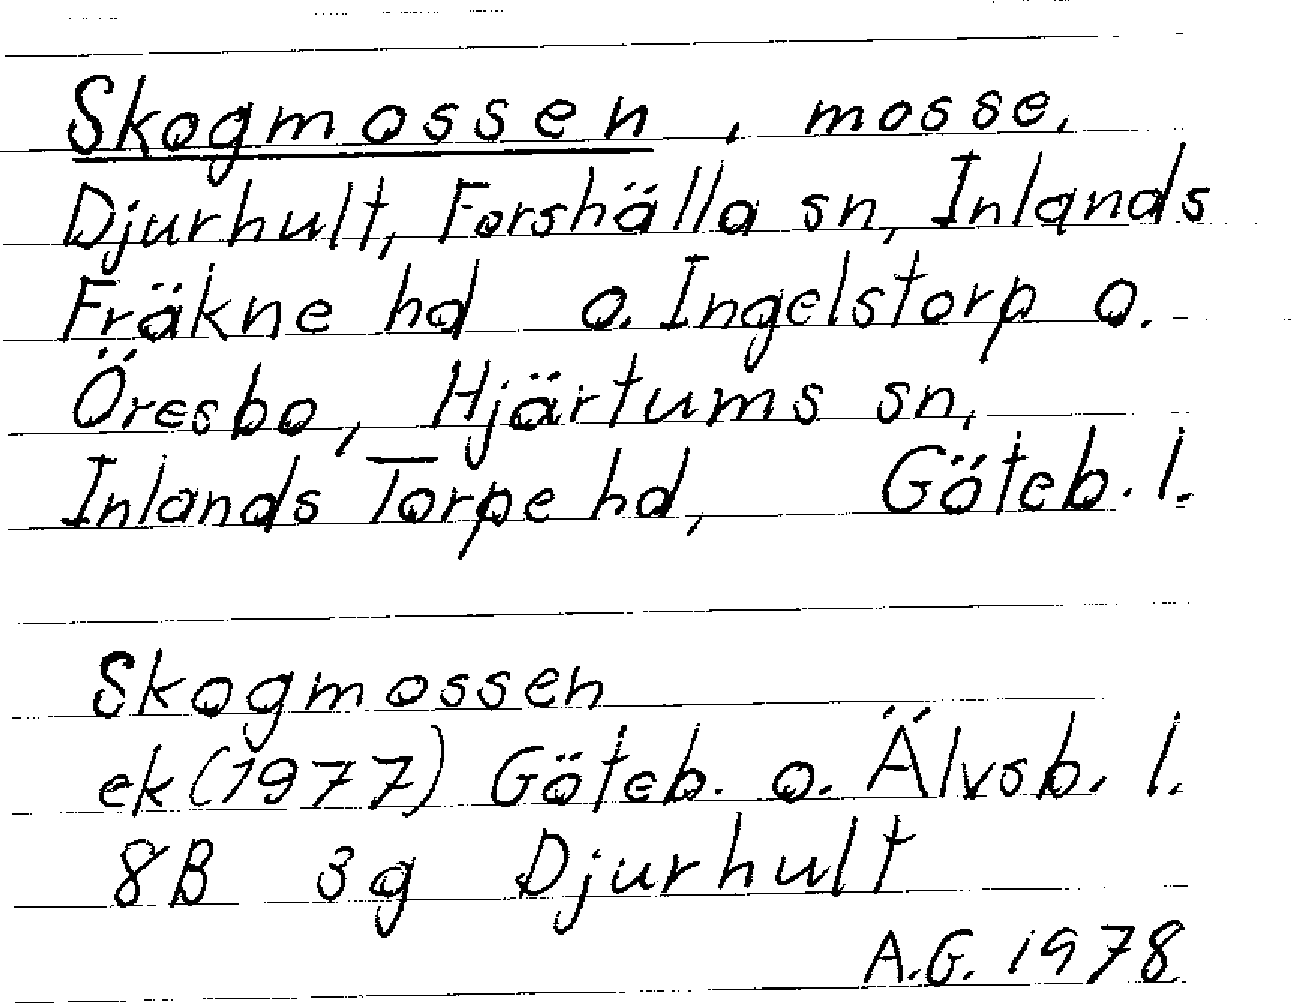 Skogmossen, mosse,
Djurhult, Forshälla sn, Inlands
Fräkne hd o. Ingelstorp o.
Öresbo, Hjärtums sn,
Inlands Torpe hd, Göteb. l.
Skogmossen
ek (1977) Göteb. o. Älvsb. l.
8B 3g Djurhult
A.G. 1978